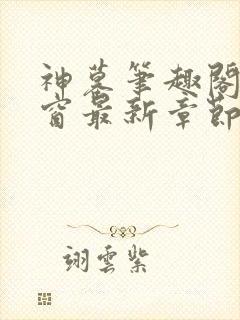 神墓筆趣閣
窗最新章節
翊雲紫